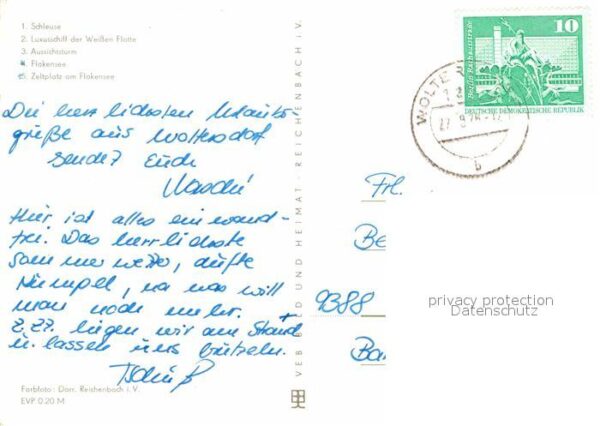 1. Schleuse
2. Luxusschiff der Weißen Flotte
3. Aussichtsturm
4. Flakensee
5. Zeltplatz am Flakensee
Die herzlichsten Urlaubs-
grüße aus Woltersdorf
sendet Euch
Hier ist alles einwand-
frei. Das herrlichste
Sommerwetter, dufte
Kumpel, na was will
man noch mehr.
Z.Zt. liegen wir am Strand
u. lassen uns brutzeln.
Tschüß
Farbfoto: Darr, Reichenbach i. V.
EVP 0.20 M
VEB BILD UND HEIMAT · REICHENBACH i. V.
10
Berlin Rathausstraße
DEUTSCHE DEMOKRATISCHE REPUBLIK
WOLTE
b
Frl.
Be
9388
Ba
privacy protection
Datenschutz